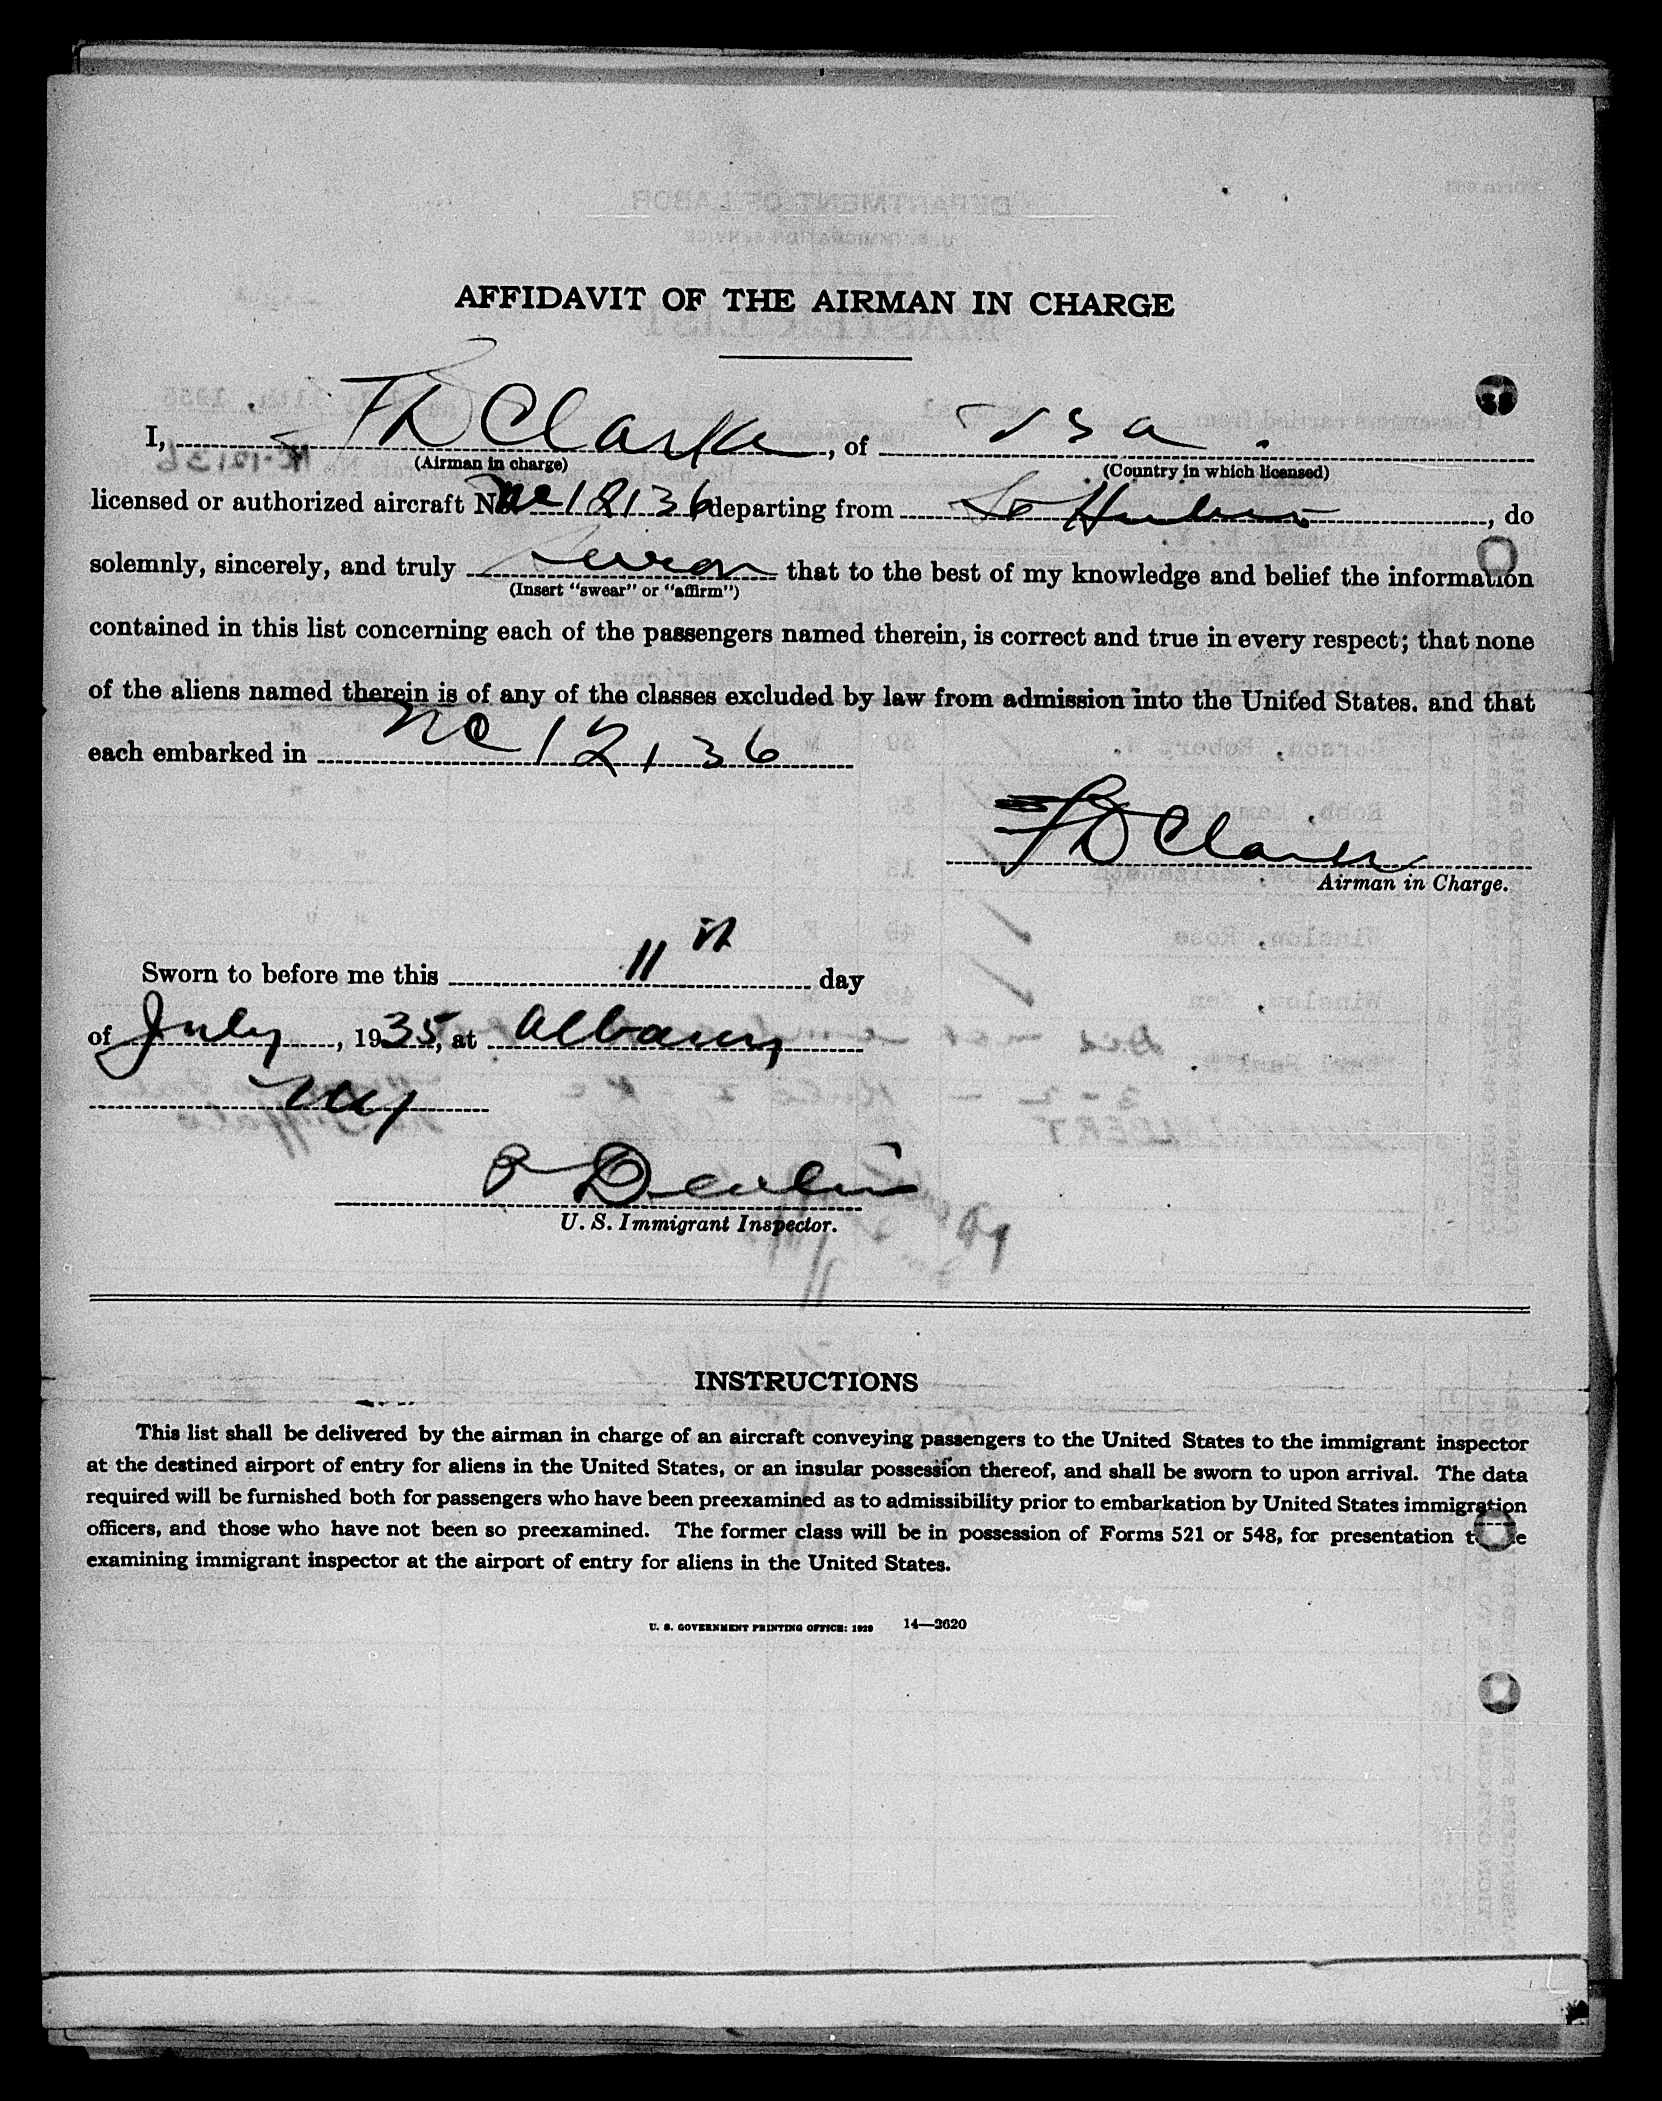 AFFIDAVIT OF THE AIRMAN IN CHARGE
I, F D Clarke, of USA.
(Airman in charge) (Country in which licensed)
licensed or authorized aircraft No. NC 12136 departing from St Hubert, do
solemnly, sincerely, and truly swear that to the best of my knowledge and belief the information
(Insert "swear" or "affirm")
contained in this list concerning each of the passengers named therein, is correct and true in every respect; that none
of the aliens named therein is of any of the classes excluded by law from admission into the United States. and that
each embarked in NC 12136
F D Clarke
Airman in Charge.
Sworn to before me this 11th day
of July, 1935, at Albany
NY
U. S. Immigrant Inspector.
INSTRUCTIONS
This list shall be delivered by the airman in charge of an aircraft conveying passengers to the United States to the immigrant inspector
at the destined airport of entry for aliens in the United States, or an insular possession thereof, and shall be sworn to upon arrival. The data
required will be furnished both for passengers who have been preexamined as to admissibility prior to embarkation by United States immigration
officers, and those who have not been so preexamined. The former class will be in possession of Forms 521 or 548, for presentation t e
examining immigrant inspector at the airport of entry for aliens in the United States.
U. S. GOVERNMENT PRINTING OFFICE: 1929 14—2620